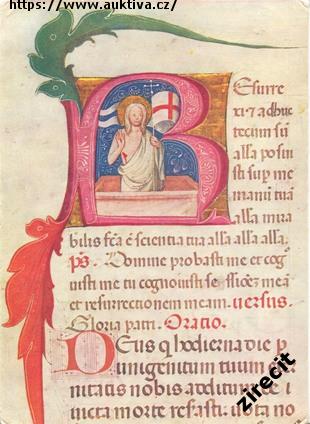 https://www.auktiva.cz/
Resurre
xi ⁊ adhuc
tecum sū
alla posui
sti sup me
manū tuā
alla mira
bilis fcā ē scientia tua alla alla alla.
ps. Domine probasti me et cog
uisti me tu cognouisti sessiōez meā
et resurrectionem meam. uersus.
Gloria patri. Oratio.
Deus q hodierna die p
unigenitum tuum eter
nitatis nobis aditum de
uicta morte reserasti. uota no
zirecit